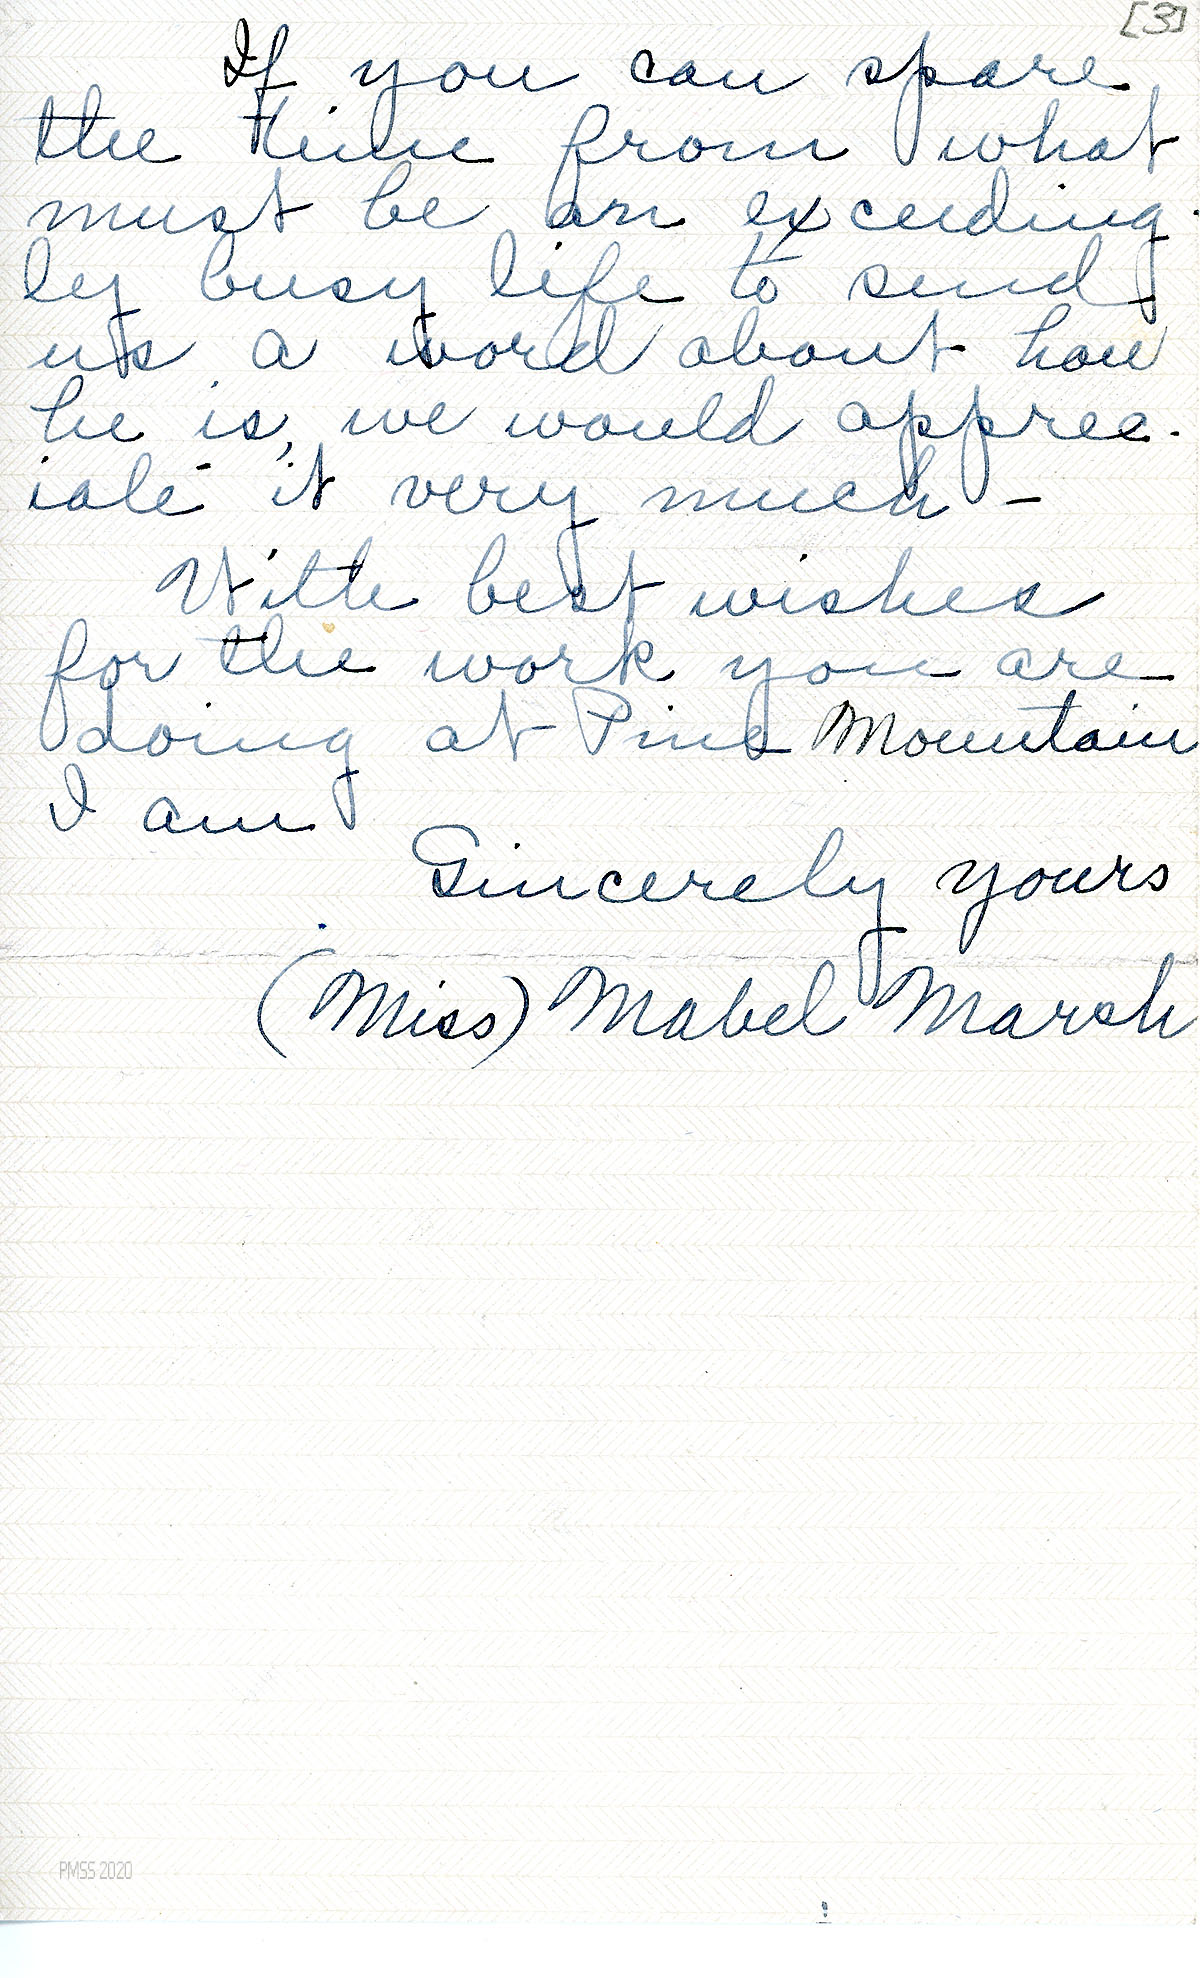 [3]
If you can spare
the time from what
must be an exceeding-
ly busy life to send
us a word about how
he is, we would apprec-
iate it very much -
With best wishes
for the work you are
doing at Pine Mountain
I am
Sincerely yours
(Miss) Mabel Marsh
PMSS 2020